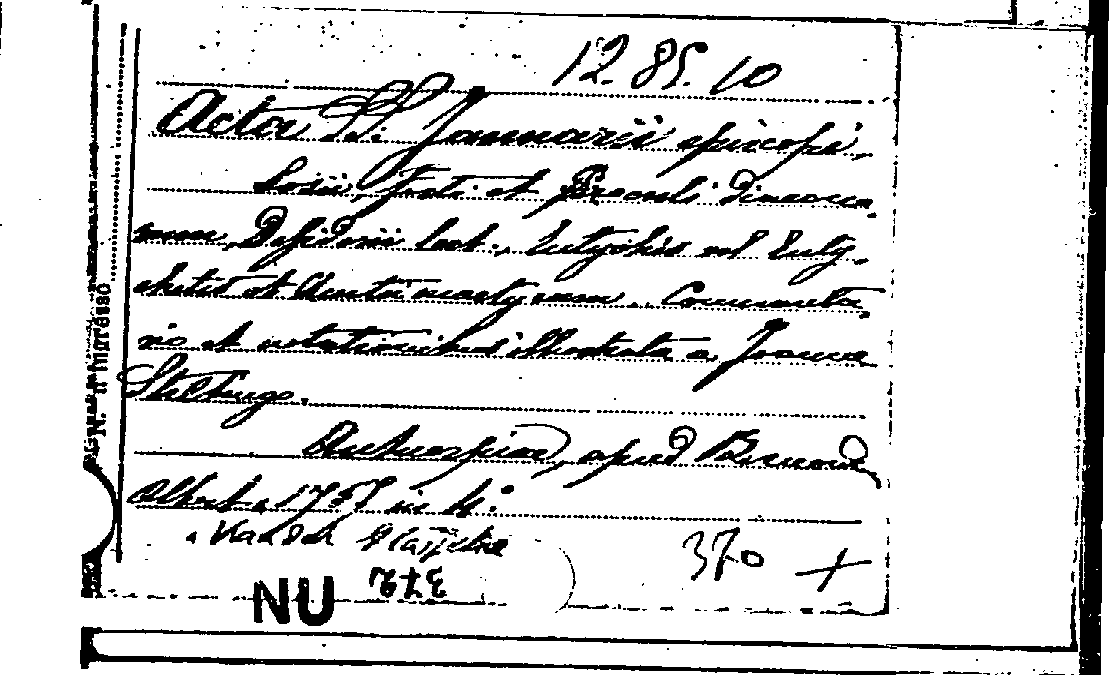 12. 85. 10
Acta SS. Januarii episcopi,
Sosii, Festi et Proculi diacono-
rum, Desiderii lect., Eutychis vel Euty-
chetis et Acutii martyrum.. Commenta-
riis et notationibus illustrata a Joanne
Stiltingo.
Antuerpiae, apud Bernard
Albert. 1757 in 4.º
Van der
370
372
NU